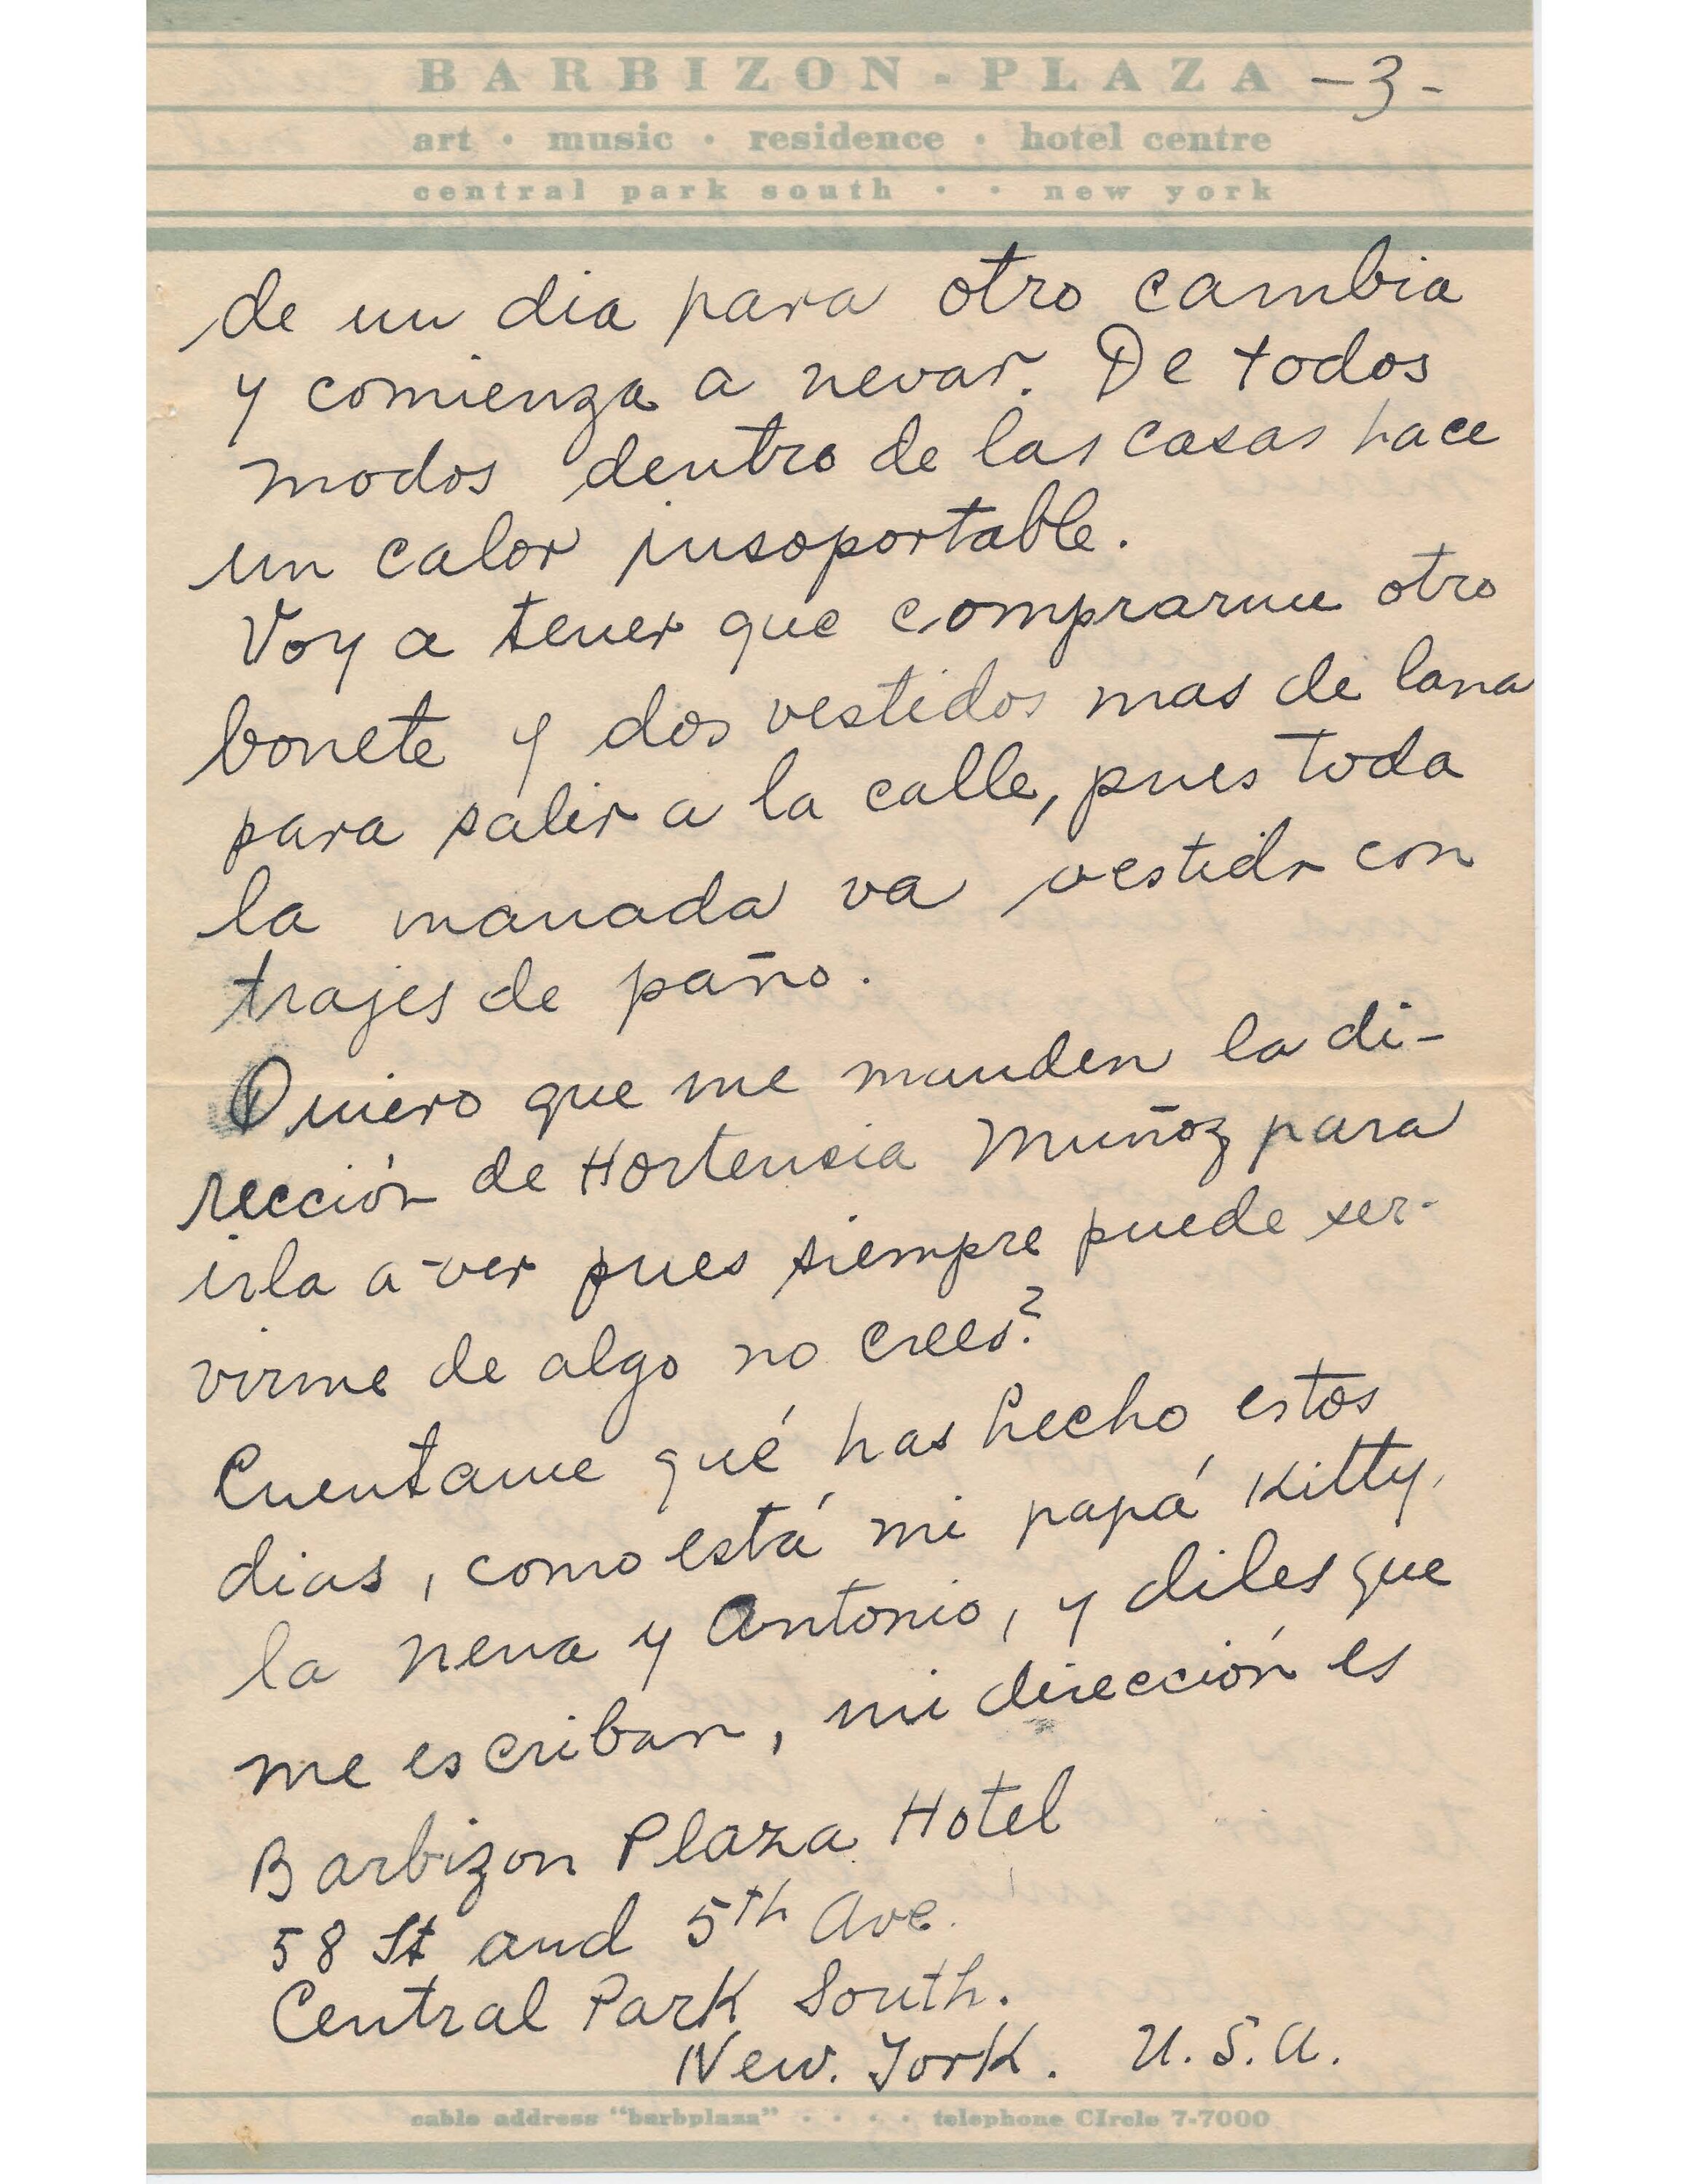 BARBIZON-PLAZA -3-
art · music · residence · hotel centre
central park south · · new york
de un dia para otro cambia
y comienza a nevar. De todos
modos dentro de las casas hace
un calor insoportable.
Voy a tener que comprarme otro
bonete y dos vestidos mas de lana
para salir a la calle, pues toda
la manada va vestida con
trajes de paño.
Quiero que me manden la di-
rección de Hortensia Muñoz para
irla a ver pues siempre puede ser-
virme de algo no crees?
Cuentame qué has hecho estos
dias, como está mi papá Kitty,
la nena y Antonio, y diles que
me escriban, mi dirección es
Barbizon Plaza Hotel
58 St and 5th Ave.
Central Park South.
New. York. U.S.A.
cable address "barbplaza" · · · · telephone CIrcle 7-7000